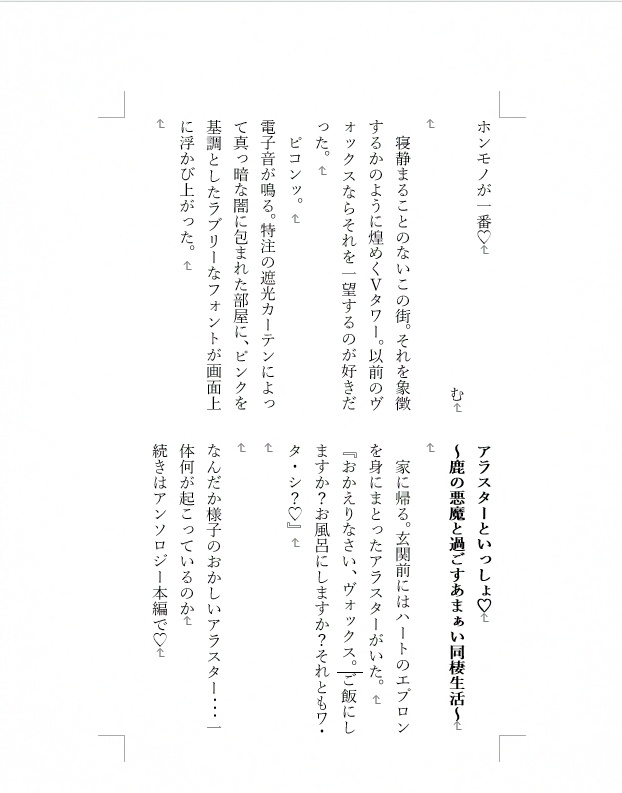 ホンモノが一番♡
む
寝静まることのないこの街。それを象徴
するかのように煌めくVタワー。以前のヴ
ォックスならそれを一望するのが好きだ
った。
ピコンッ。
電子音が鳴る。特注の遮光カーテンによっ
て真っ暗な闇に包まれた部屋に、ピンクを
基調としたラブリーなフォントが画面上
に浮かび上がった。
アラスターといっしょ♡
～鹿の悪魔と過ごすあまぁい同棲生活～
家に帰る。玄関前にはハートのエプロン
を身にまとったアラスターがいた。
『おかえりなさい、ヴォックス。ご飯にし
ますか？お風呂にしますか？それともワ・
タ・シ？♡』
なんだか様子のおかしいアラスター・・・一
体何が起こっているのか
続きはアンソロジー本編で♡